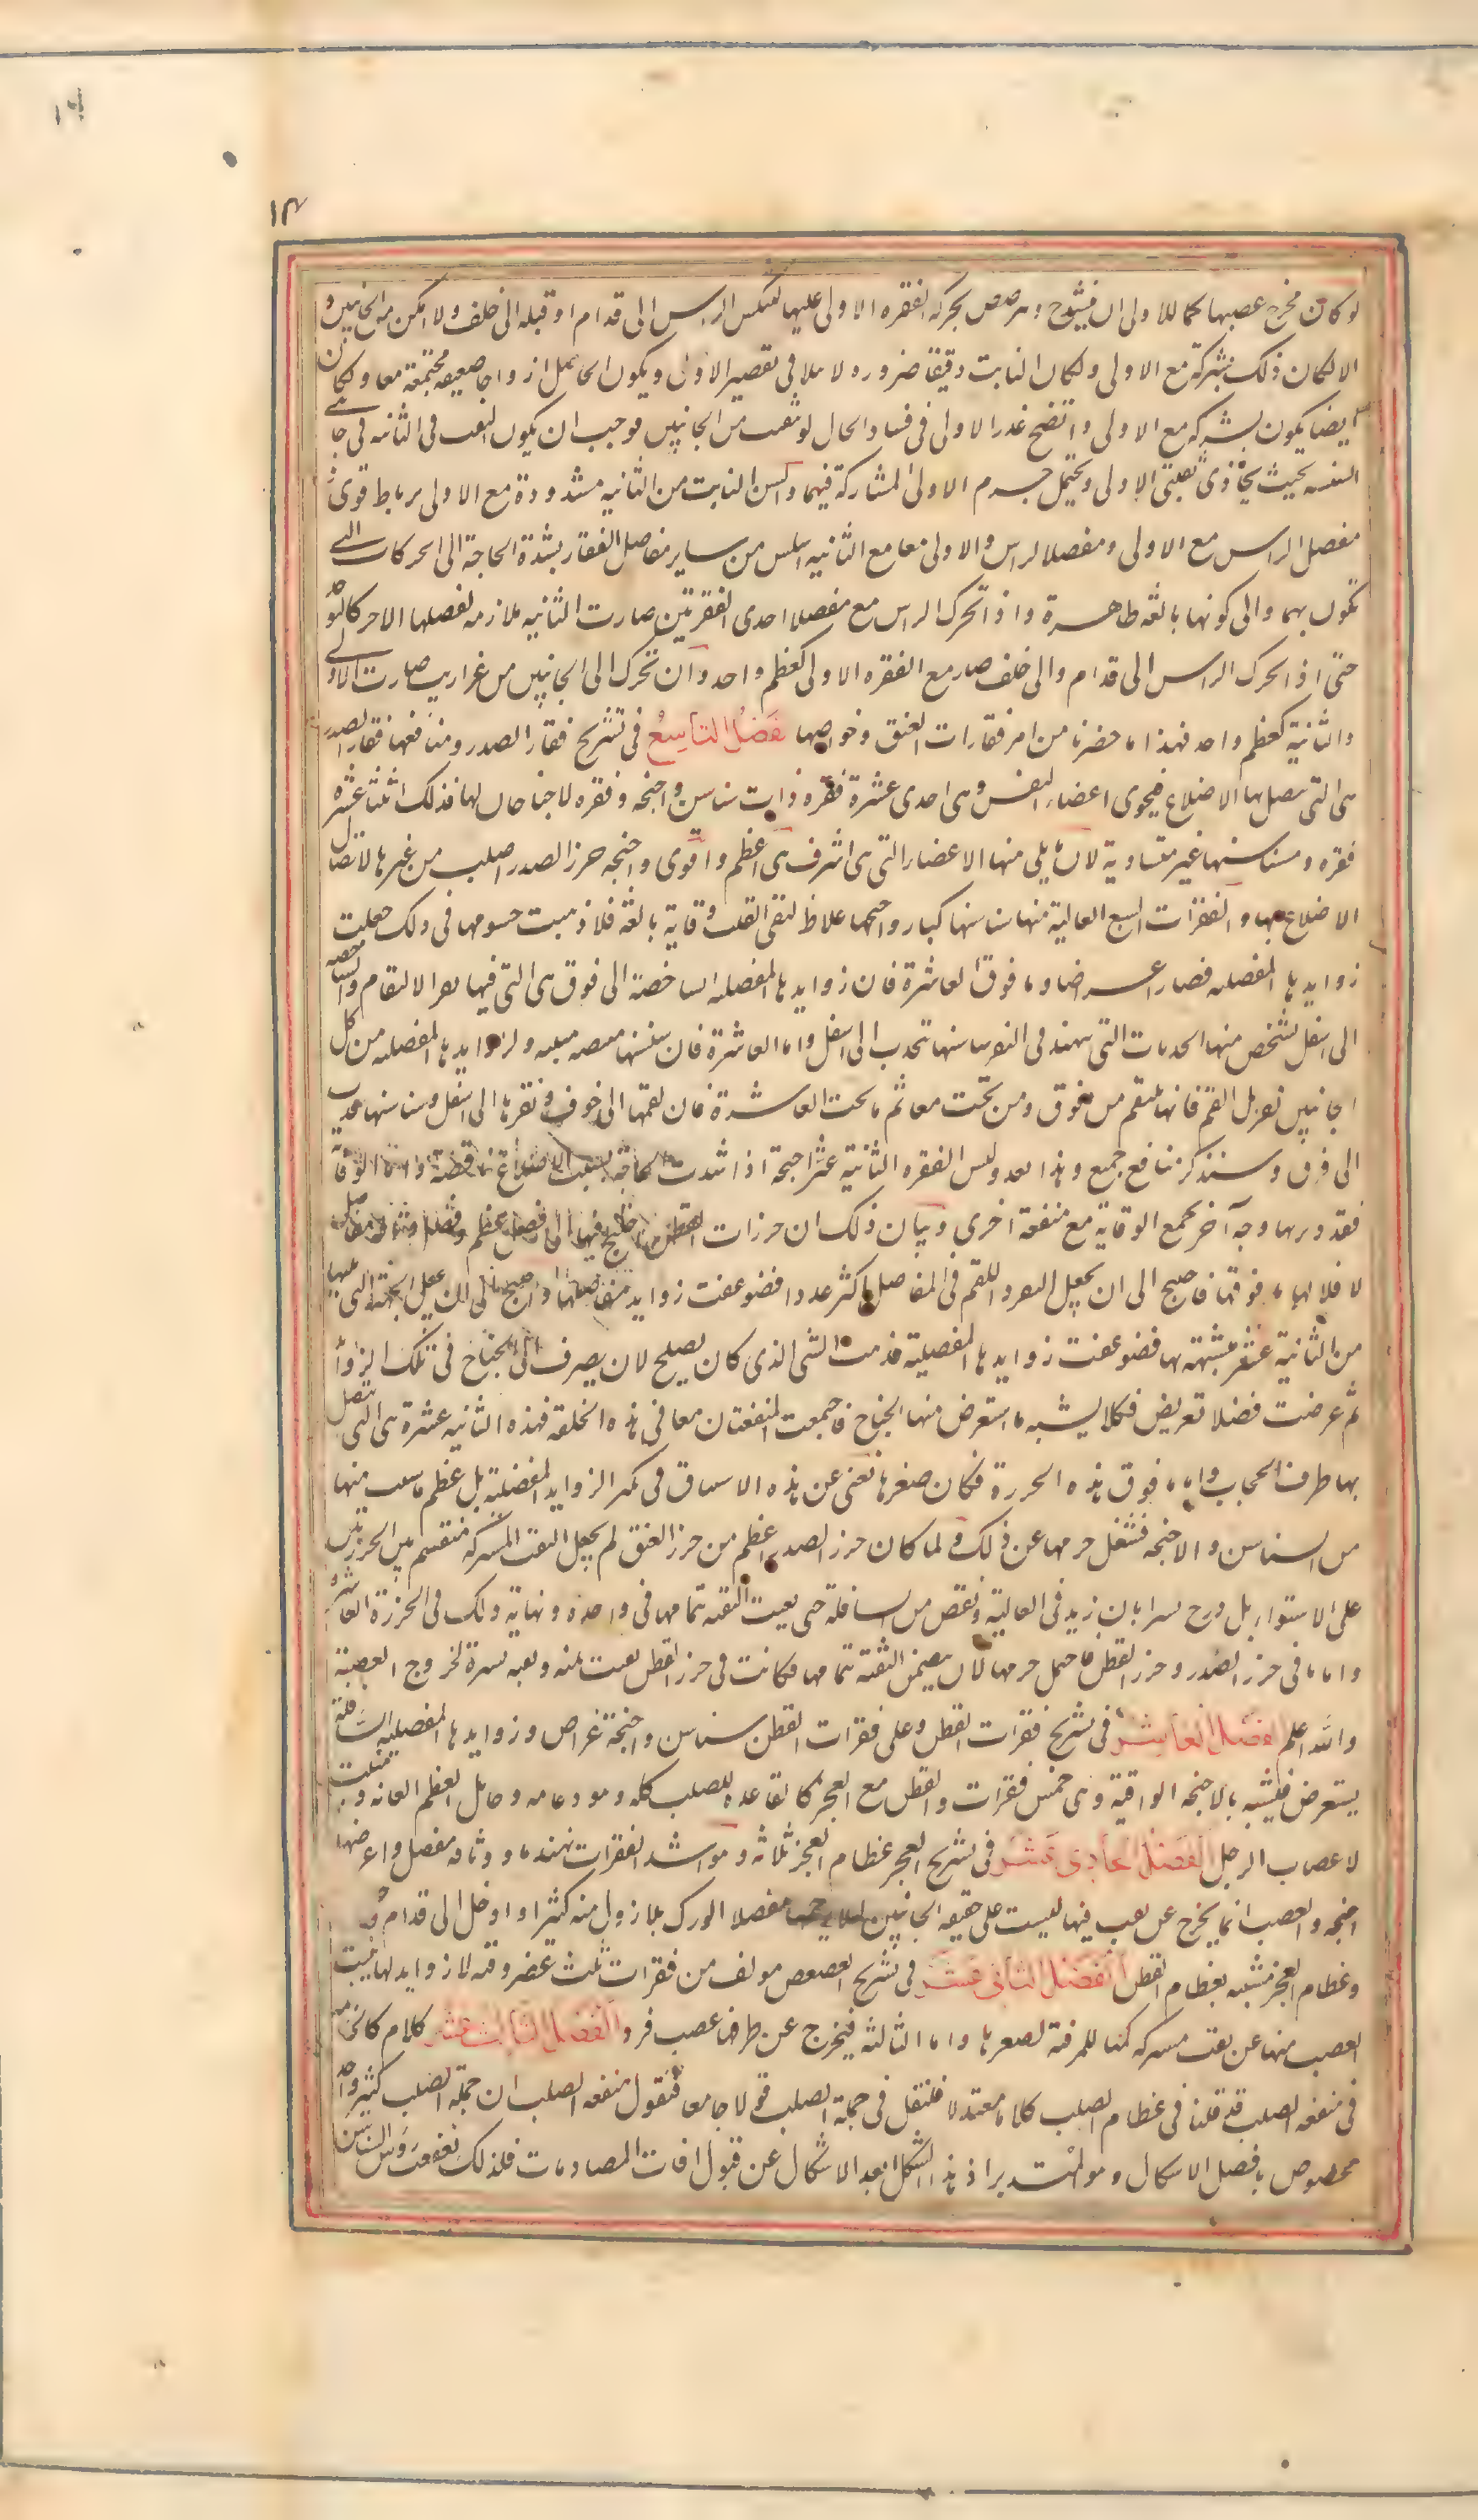 ١٤
١٣
لو كان مخرج عصبها كما للاولى ان ينشدخ ويترضض بحركة الفقره الاولى عليها لتنكس الراس الى قدام او قبله الى خلف ولا امكن من الجانبين و
الا لكان ذلك بشركة مع الاولى ولكان النابت دقيقا ضروره لا يتلافى تقصير الاول ويكون الحاصل ازواجا ضعيفه مجتمعة معا ولكان
ايضا يكون بشركه مع الاولى واتضح عذر الاولى فى فساد الحال لو ثقبت من الجانبين فوجب ان يكون الثقب فى الثانيه فى جانبى
السنسنه بحيث يحاذى ثقبتى الاولى ويحتمل جرم الاولى المشاركة فيهما والسن النابت من الثانيه مشدودة مع الاولى برباط قوى و
مفصل الراس مع الاولى ومفصلا الراس والاولى معا مع الثانيه اسلس من ساير مفاصل الفقار لشدة الحاجة الى الحركات التى
تكون بهما والى كونها بالغه ظاهرة واذا تحرك الراس مع مفصلا احدى الفقرتين صارت الثانيه ملازمه لمفصلها الاخر كالمتوحد
حتى اذا تحرك الراس الى قدام والى خلف صار مع الفقره الاولى كعظم واحد وان تحرك الى الجانبين من غير اريب صارت الاولى
والثانية كعظم واحد فهذا ما حضرنا من امر فقارات العنق وخواصها فصل التاسع فى تشريح فقار الصدر ومنافعها فقار الصدر
هى التى تتصل بها الاضلاع فيحوى اعضاء النفس وهى احدى عشرة فقره ذوات سناسن واجنحه وفقره لا جناحان لها فذلك اثنتا عشره
فقره وسناسنها غير متساوية لان ما يلى منها الاعضاء التى هى اشرف هى اعظم واقوى واجنحه خرز الصدر اصلب من غيرها لاتصال
الاضلاع بها والفقرات السبع العالية منها سناسنها كبار واجنحتها غلاظ لتقى القلب وقاية بالغة فلما ذهبت جسومها فى ذلك جعلت
زوايدها المفصليه قصارا عراضا وما فوق العاشرة فان زوايدها المفصليه الشاخصة الى فوق هى التى فيها نقر الالتقام والشاخصه
الى اسفل تشخص منها الحدبات التى تتهندم فى النقر وسناسنها تتحدب الى اسفل واما العاشرة فان سنسنتها منتصبه مقببه ولزوايدها المفصليه من كل
الجانبين نقر بل لقم فانها تلتقم من فوق ومن تحت معا ثم ما تحت العاشرة فان لقمها الى فوق ونقرها الى اسفل وسناسنها تتحدب
الى فوق وسنذكر منافع جميع هذا بعد وليس للفقره الثانية عشر اجنحة اذا شدت الحاجة بسبب الاضلاع ناقصة واما الوقاية
فقد دبر لها وجه آخر يجمع الوقاية مع منفعة اخرى وبيان ذلك ان خرزات القطن احتيج فيها الى فضل عظم وفضل وثاقه مفاصل
لاقلالها ما فوقها فاحتيج الى ان يجعل النقر واللقم فى المفاصل اكثر عددا فضوعفت زوايد مفاصلها واحتيج الى ان يجعل الجهة التى تليها
من الثانية عشر متشبهه بها فضوعفت زوايدها المفصلية فذهب الشى الذى كان يصلح لان يصرف الى الجناح فى تلك الزوائد
ثم عرضت فضلا تعريض فكان يشبه ما استعرض منها الجناح فاجتمعت المنفعتان معا فى هذه الخلقه فهذه الثانيه عشرة هى التى تتصل
بها طرف الحجاب واما ما فوق هذه الخرزة فكان صغرها تغنى عن هذه الاستيثاق فى تكثير الزوايد المفصلية بل عظم ما ينبت منها
من السناسن والاجنحه فشغل جرمها عن ذلك ولما كان خرز الصدر اعظم من خرز العنق لم يجعل الثقب المشتركه منقسم بين الخرزتين
على الاستواء بل درج يسيرا بان زيد فى العالية ونقص من السافلة حتى بقيت الثقبه تمامها فى واحده ونهاية ذلك فى الخرزة العاشرة
واما ما فى خرز الصدر وخرز القطن فاحتمل جرمها لان يتضمن الثقبة تمامها فكانت فى خرز القطن ثقبة يمنه وثقبه يسرة لخروج العصبة
والله اعلم الفصل العاشر فى تشريح فقرات القطن وعلى فقرات القطن سناسن واجنحة عراض وزوايدها المفصليه السافلة
يستعرض فيتشبه بالاجنحه الواقية وهى خمس فقرات والقطن مع العجز كالقاعده للصلب كله وهو دعامه وحامل لعظم العانه ومنبت
لاعصاب الرجل الفصل الحادى عشر فى تشريح العجز عظام العجز ثلاثه وهو اشد الفقرات تهندما ووثاقه مفصل واعرضها
اجنحه والعصب انما يخرج عن ثقب فيها ليست على حقيقه الجانبين لئلا يزحمها مفصلا الورك بل ازول منه كثيرا وادخل الى قدام و
وعظام العجز مشبه بعظام القطن الفصل الثانى عشر فى تشريح العصعص مولف من فقرات ثلث غضروفيه لا زوايد لها ينبت
العصب منها عن ثقب مشتركه كما للرقبة لصغرها واما الثالثه فيخرج عن طرفها عصب فرد الفصل الثالث عشر كلام كالخاتمه
فى منفعه الصلب قد قلنا فى عظام الصلب كلاما معتدلا فلنقل فى جملة الصلب قولا جامعا فنقول منفعه الصلب ان جملة الصلب كشى واحد
مخصوص بافضل الاشكال وهو المستدير اذ هذا الشكل ابعد الاشكال عن قبول افات المصادمات فلذلك تعقفت روس السناسن